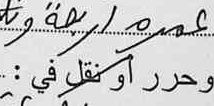 عمره اربعة و
وحرر أو نقل في :